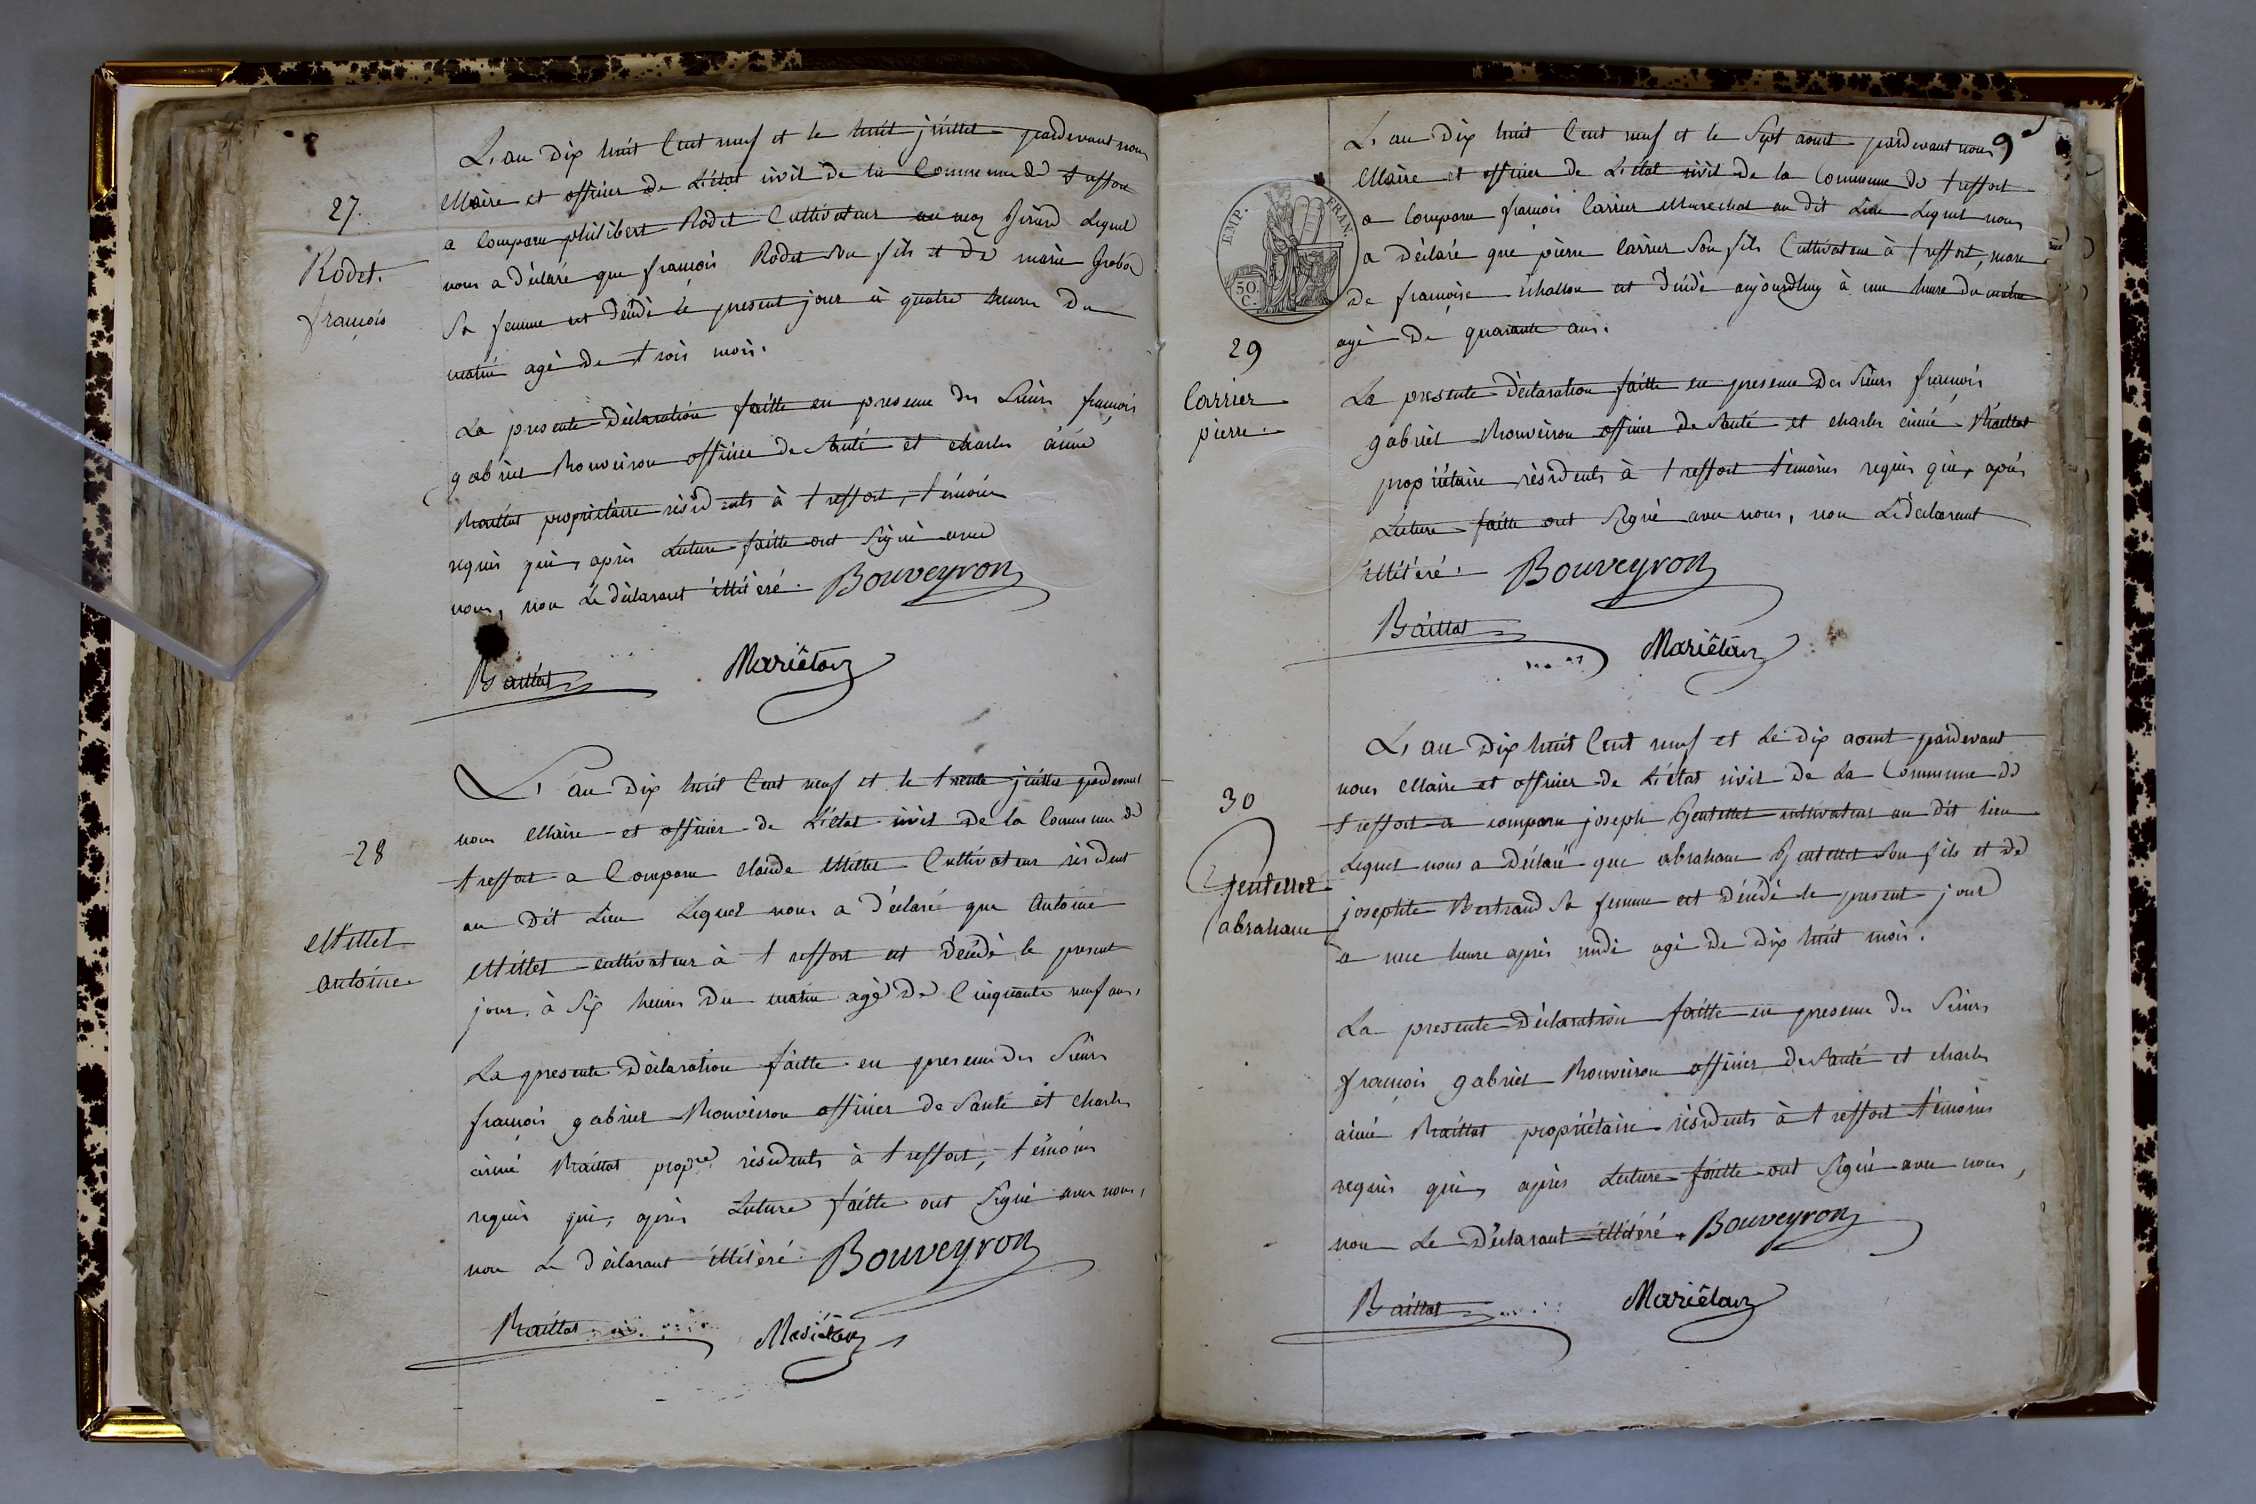 27.
Rodet.
françois
L'an dix huit Cent neuf et le huit juillet pardevant nous
Maire et officier de L'état civil de la Commune de treffort
a Comparu philibert Rodet Cultivateur au maz Girard Lequel
nous a déclaré que françois Rodet son fils et de marie
sa femme est décédé le present jour à quatre heures du
matin agé de trois mois.
La presente déclaration faitte en presence des Sieurs françois
gabriel Bouveiron officier de Santé et charles aimé
Baillat propriétaire résidents à treffort, témoins
requis qui, après Lecture faitte ont Signé avec
nous, non Le déclarant illitéré. Bouveyron
Baillat Mariétan
28
Millet
antoine
L'an dix huit Cent neuf et le trente juillet pardevant
nous Maire et officier de L'état civil de la Commune de
treffort a Comparu claude Millet Cultivateur résident
au dit Lieu Lequel nous a déclaré que Antoine
Millet cultivateur à treffort est décédé le present
jour, à Six heures du matin agé de Cinquante neuf ans,
La presente déclaration faitte en presence des Sieurs
françois gabriel Bouveiron officier de Santé et charles
aimé Baillat propre résidents à treffort, témoins
requis qui, après Lecture faitte ont Signé avec nous,
non Le déclarant illitéré. Bouveyron
Baillat Mariétan
9
EMP. FRAN.
50 C.
29
Carrier
pierre.
L'an dix huit Cent neuf et le Sept aout pardevant nous
Maire et officier de L'état civil de la Commune de treffort
a Comparu françois Carrier Marechal au dit Lieu Lequel nous
a déclaré que pierre Carrier Son fils Cultivateur à treffort, mari
de françoise chatton est décédé aujourdhuy à une heure du matin
agé de quarante ans.
La presente déclaration faitte en presence des Sieurs françois
gabriel Bouveiron officier de Santé et charles aimé Baillat
propriétaire résidents à treffort témoins requis qui, après
Lecture faitte ont Signé avec nous, non Le déclarant
illitéré. Bouveyron
Baillat Mariétan
30
Gentellet
abraham
L'an dix huit Cent neuf et Le dix aout pardevant
nous Maire et officier de L'état civil de La Commune de
treffort a comparu joseph Gentellet cultivateur au dit lieu
Lequel nous a déclaré que abraham Gentellet Son fils et de
josephte Bertrand Sa femme est décédé le present jour
à une heure après midi agé de dix huit mois.
La presente déclaration faitte en presence des Sieurs
françois gabriel Bouveiron officier de Santé et charles
aimé Baillat propriétaire résidents à treffort témoins
requis qui, après Lecture faitte ont Signé avec nous,
non Le déclarant illitéré. Bouveyron
Baillat Mariétan